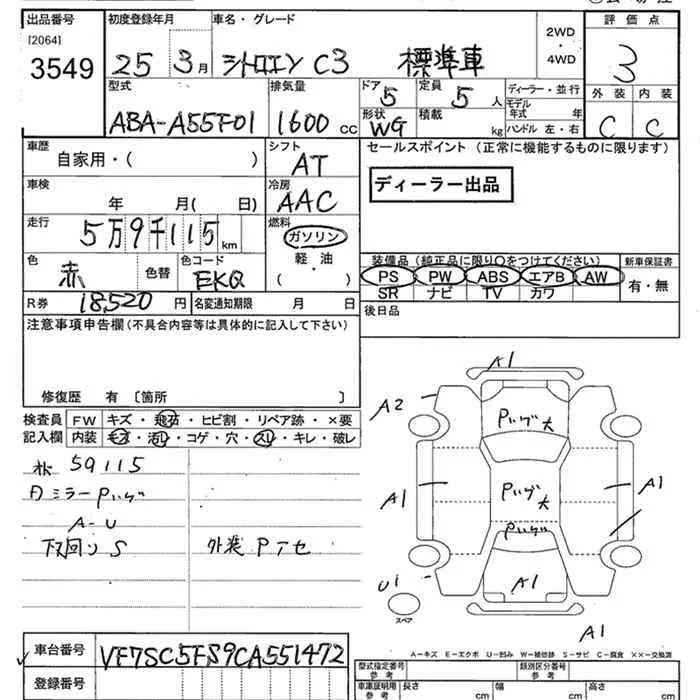 出品番号
[2064]
3549
初度登録年月
25 3月
車名・グレード
シトロエン C3 標準車
2WD
・
4WD
評価点
3
外装 内装
C C
型式
ABA-A55F01
排気量
1600 cc
ドア
5
定員
5 人
形状
WG
積載
kg
ディーラー・並行
モデル年式 年
ハンドル 左・右
車歴
自家用・( )
シフト
AT
車検
年 月( 日)
冷房
AAC
走行
5万9千115 km
燃料
ガソリン
軽・油
( )
色
赤
色替
色コード
EKQ
R券 18,520 円
名変通知期限 月 日
セールスポイント(正常に機能するものに限ります)
ディーラー出品
装備品(純正品に限り○をつけてください)
PS PW ABS エアB AW
SR ナビ TV カワ
新車保証書
有・無
後日品
注意事項申告欄(不具合内容等は具体的に記入して下さい)
修復歴 有〔箇所 〕
検査員記入欄
FW キズ・飛石・ヒビ割・リペア跡・×要
内装 キズ・汚レ・コゲ・穴・スレ・キレ・破レ
59115
ミラーPハゲ
A-U
下回り S
外装 Pアセ
A1
A2
Pハゲ大
A1
Pハゲ大
A1
Pハゲ
A1
U1
スペア
A1
A=キズ E=エクボ U=凹み W=補修跡 S=サビ C=腐食 ××=交換済
車台番号
VF7SC5FS9CA551472
登録番号
型式指定番号
参考
類別区分番号
参考
車庫証明用
参考
長さ cm
幅 cm
高さ cm